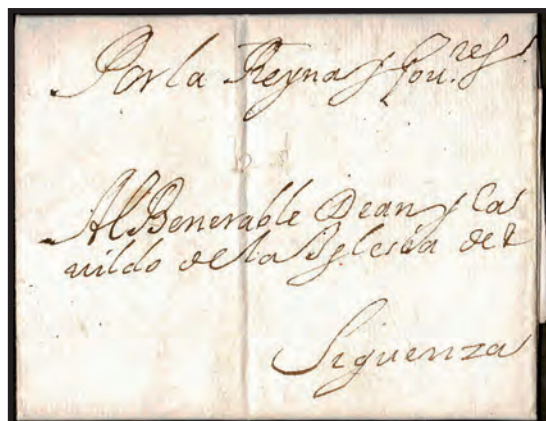 Por la Reyna y Gou.res
Al Benerable Dean y Ca
uildo de la Yglesia de
Siguenza